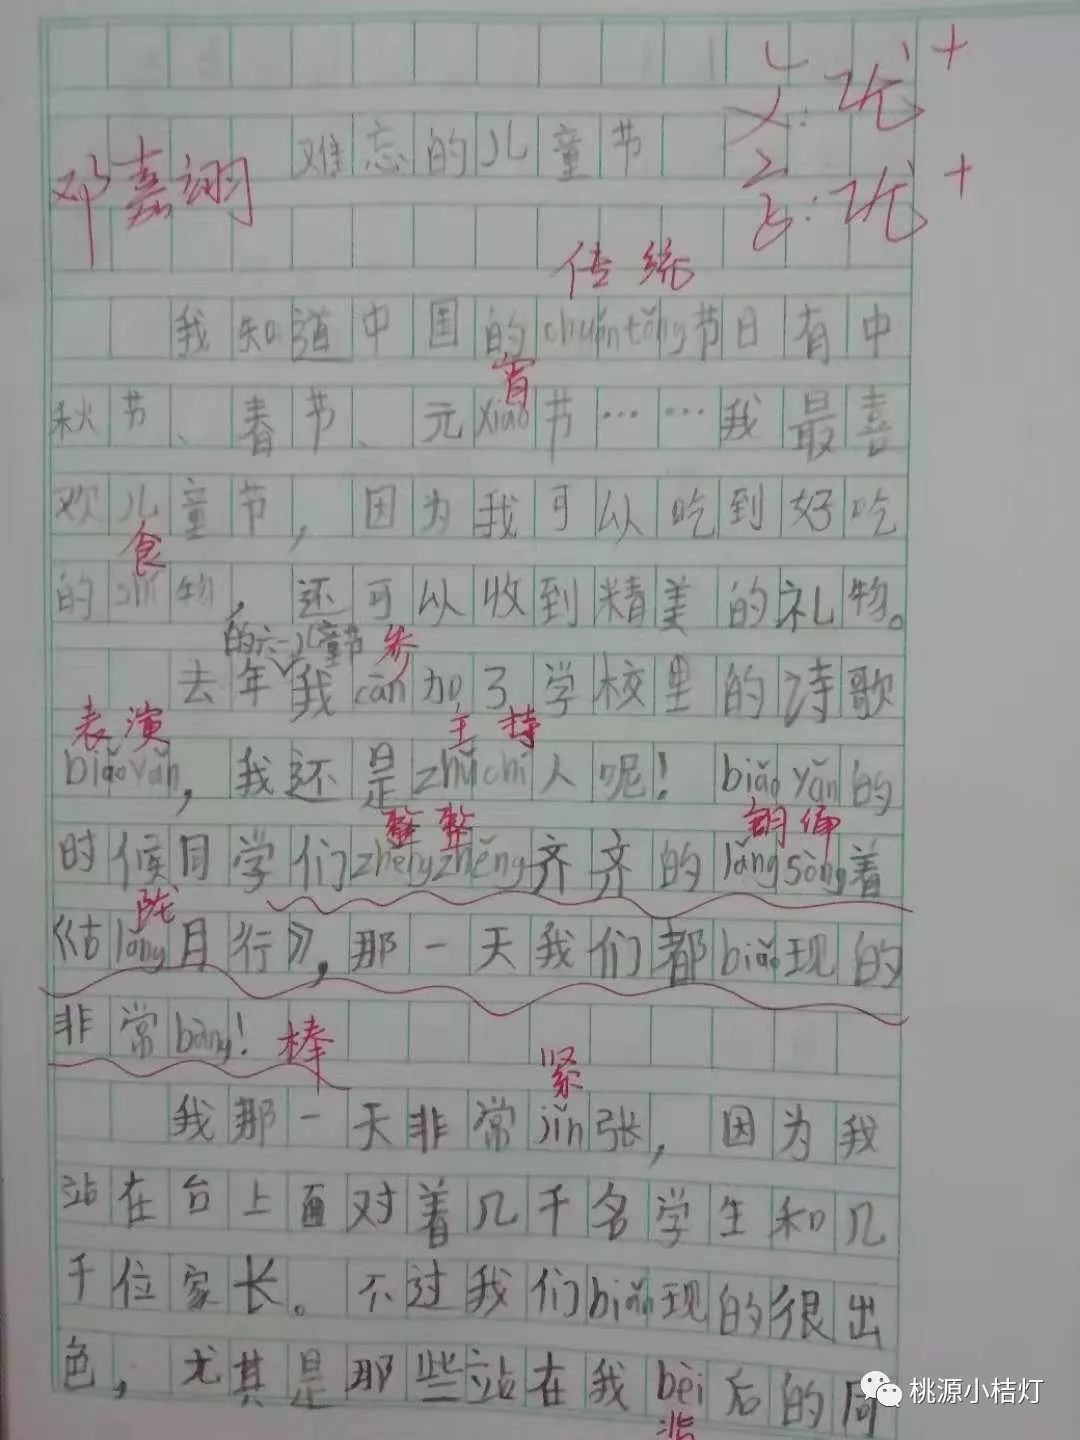 文:优+
难忘的儿童节
邓嘉诩
书:优+
传统
我知道中国的chuántǒng节日有中
宵
秋节、春节、元xiāo节……我最喜
欢儿童节，因为我可以吃到好吃
食
的shí物，还可以收到精美的礼物。
的六一儿童节 参
去年我cān加了学校里的诗歌
表演 主持
biǎoyǎn，我还是zhǔchí人呢！biǎoyǎn的
整整 朗诵
时候同学们zhěngzhěng齐齐的lǎngsòng着
陇
《古lǒng月行》，那一天我们都biǎo现的
非常bàng！棒
紧
我那一天非常jǐn张，因为我
站在台上面对着几千名学生和几
千位家长。不过我们biǎo现的很出
色，尤其是那些站在我bèi后的同
背
桃源小桔灯